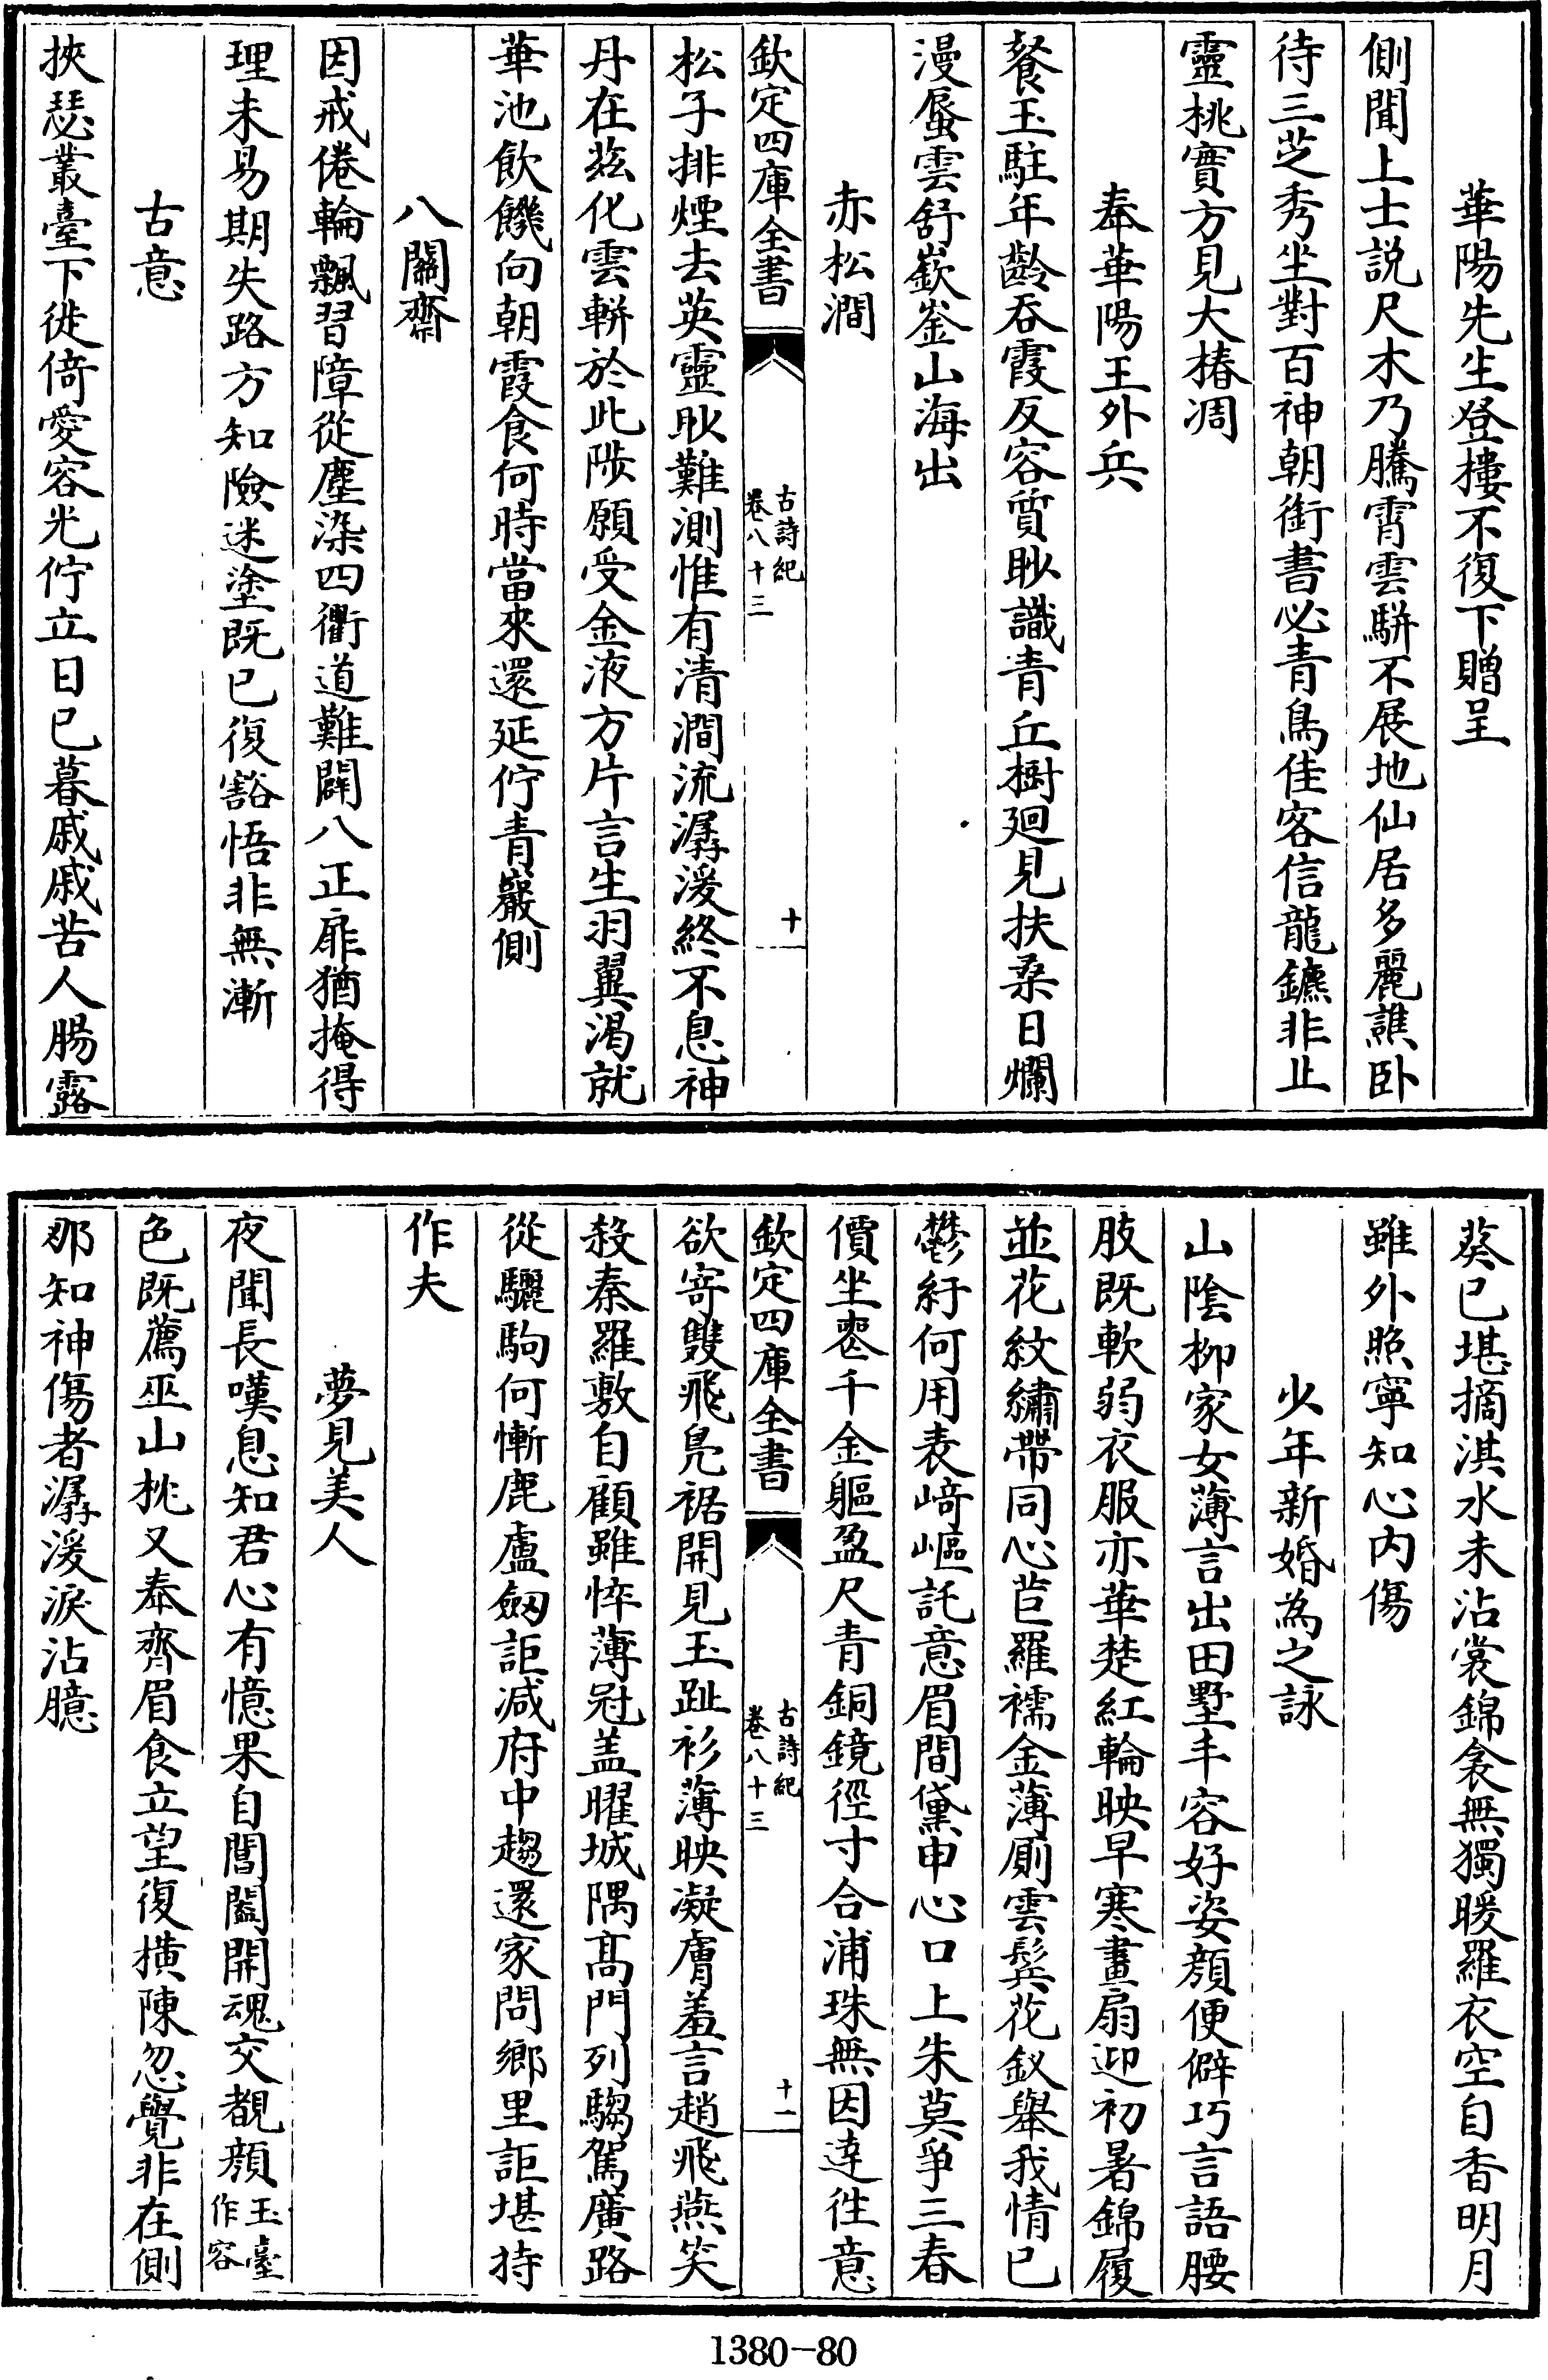 華陽先生登摟不復下贈呈
側聞上士説尺木乃騰霄雲駢不展地仙居多麗譙卧
待三芝秀坐對百神朝銜書必青鳥佳客信龍鑣非止
靈桃實方見大椿凋
奉華陽王外兵
餐玉駐年齡吞霞反容質眇識青丘樹廻見扶桑日爛
漫蜃雲舒嶔崟山海出
赤松澗
欽定四庫全書
古詩紀
卷八十三
十
松子排煙去英靈眇難測惟有清澗流潺湲終不息神
丹在兹化雲軿於此陟願受金液方片言生羽翼渴就
華池飲饑向朝霞食何時當來還延佇青巖側
八關齋
因戒倦輪飄習障從塵染四衢道難闢八正扉猶掩得
理未易期失路方知險迷塗既已復豁悟非無漸
古意
挾瑟叢臺下徙倚愛容光佇立日已暮戚戚苦人腸露
葵已堪摘淇水未沾裳錦衾無獨暖羅衣空自香明月
雖外照寧知心内傷
少年新婚為之詠
山隂柳家女薄言出田墅丰容好姿顔便僻巧言語腰
肢既軟弱衣服亦華楚紅輪映早寒畫扇迎初暑錦履
並花紋繡帶同心苣羅襦金薄厠雲鬂花釵舉我情已
鬱紆何用表崎嶇託意眉間黛申心口上朱莫爭三春
價坐䘮千金軀盈尺青銅鏡徑寸合浦珠無因達徃意
欽定四庫全書
古詩紀
卷八十三
十一
欲寄雙飛鳬裾開見玉趾衫薄映凝膚羞言趙飛燕笑
殺秦羅敷自顧雖悴薄冠盖曜城隅髙門列騶駕廣路
從驪駒何慚鹿盧劔詎減府中趨還家問鄉里詎堪持
作夫
夢見美人
夜聞長嘆息知君心有憶果自閶闔開魂交覩顔玉臺作容
色既薦巫山枕又奉齊眉食立望復横陳忽覺非在側
那知神傷者潺湲淚沾臆
1380-80